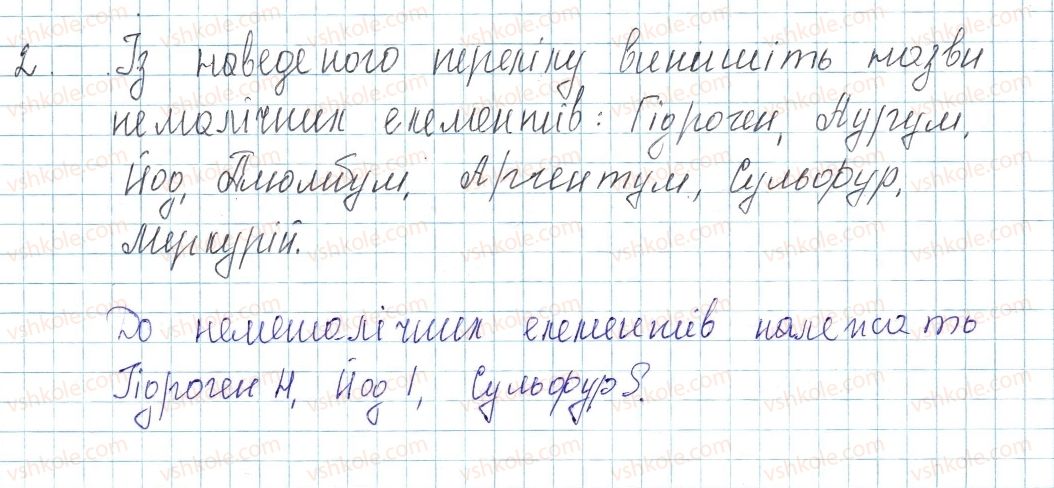 2. Із наведеного переліку випишіть назви
немалічних елементів: Гідроген, Аурум,
Йод, Плюмбум, Аргентум, Сульфур,
Меркурій.
До неметалічних елементів належать
Гідроген H, Йод I, Сульфур S.